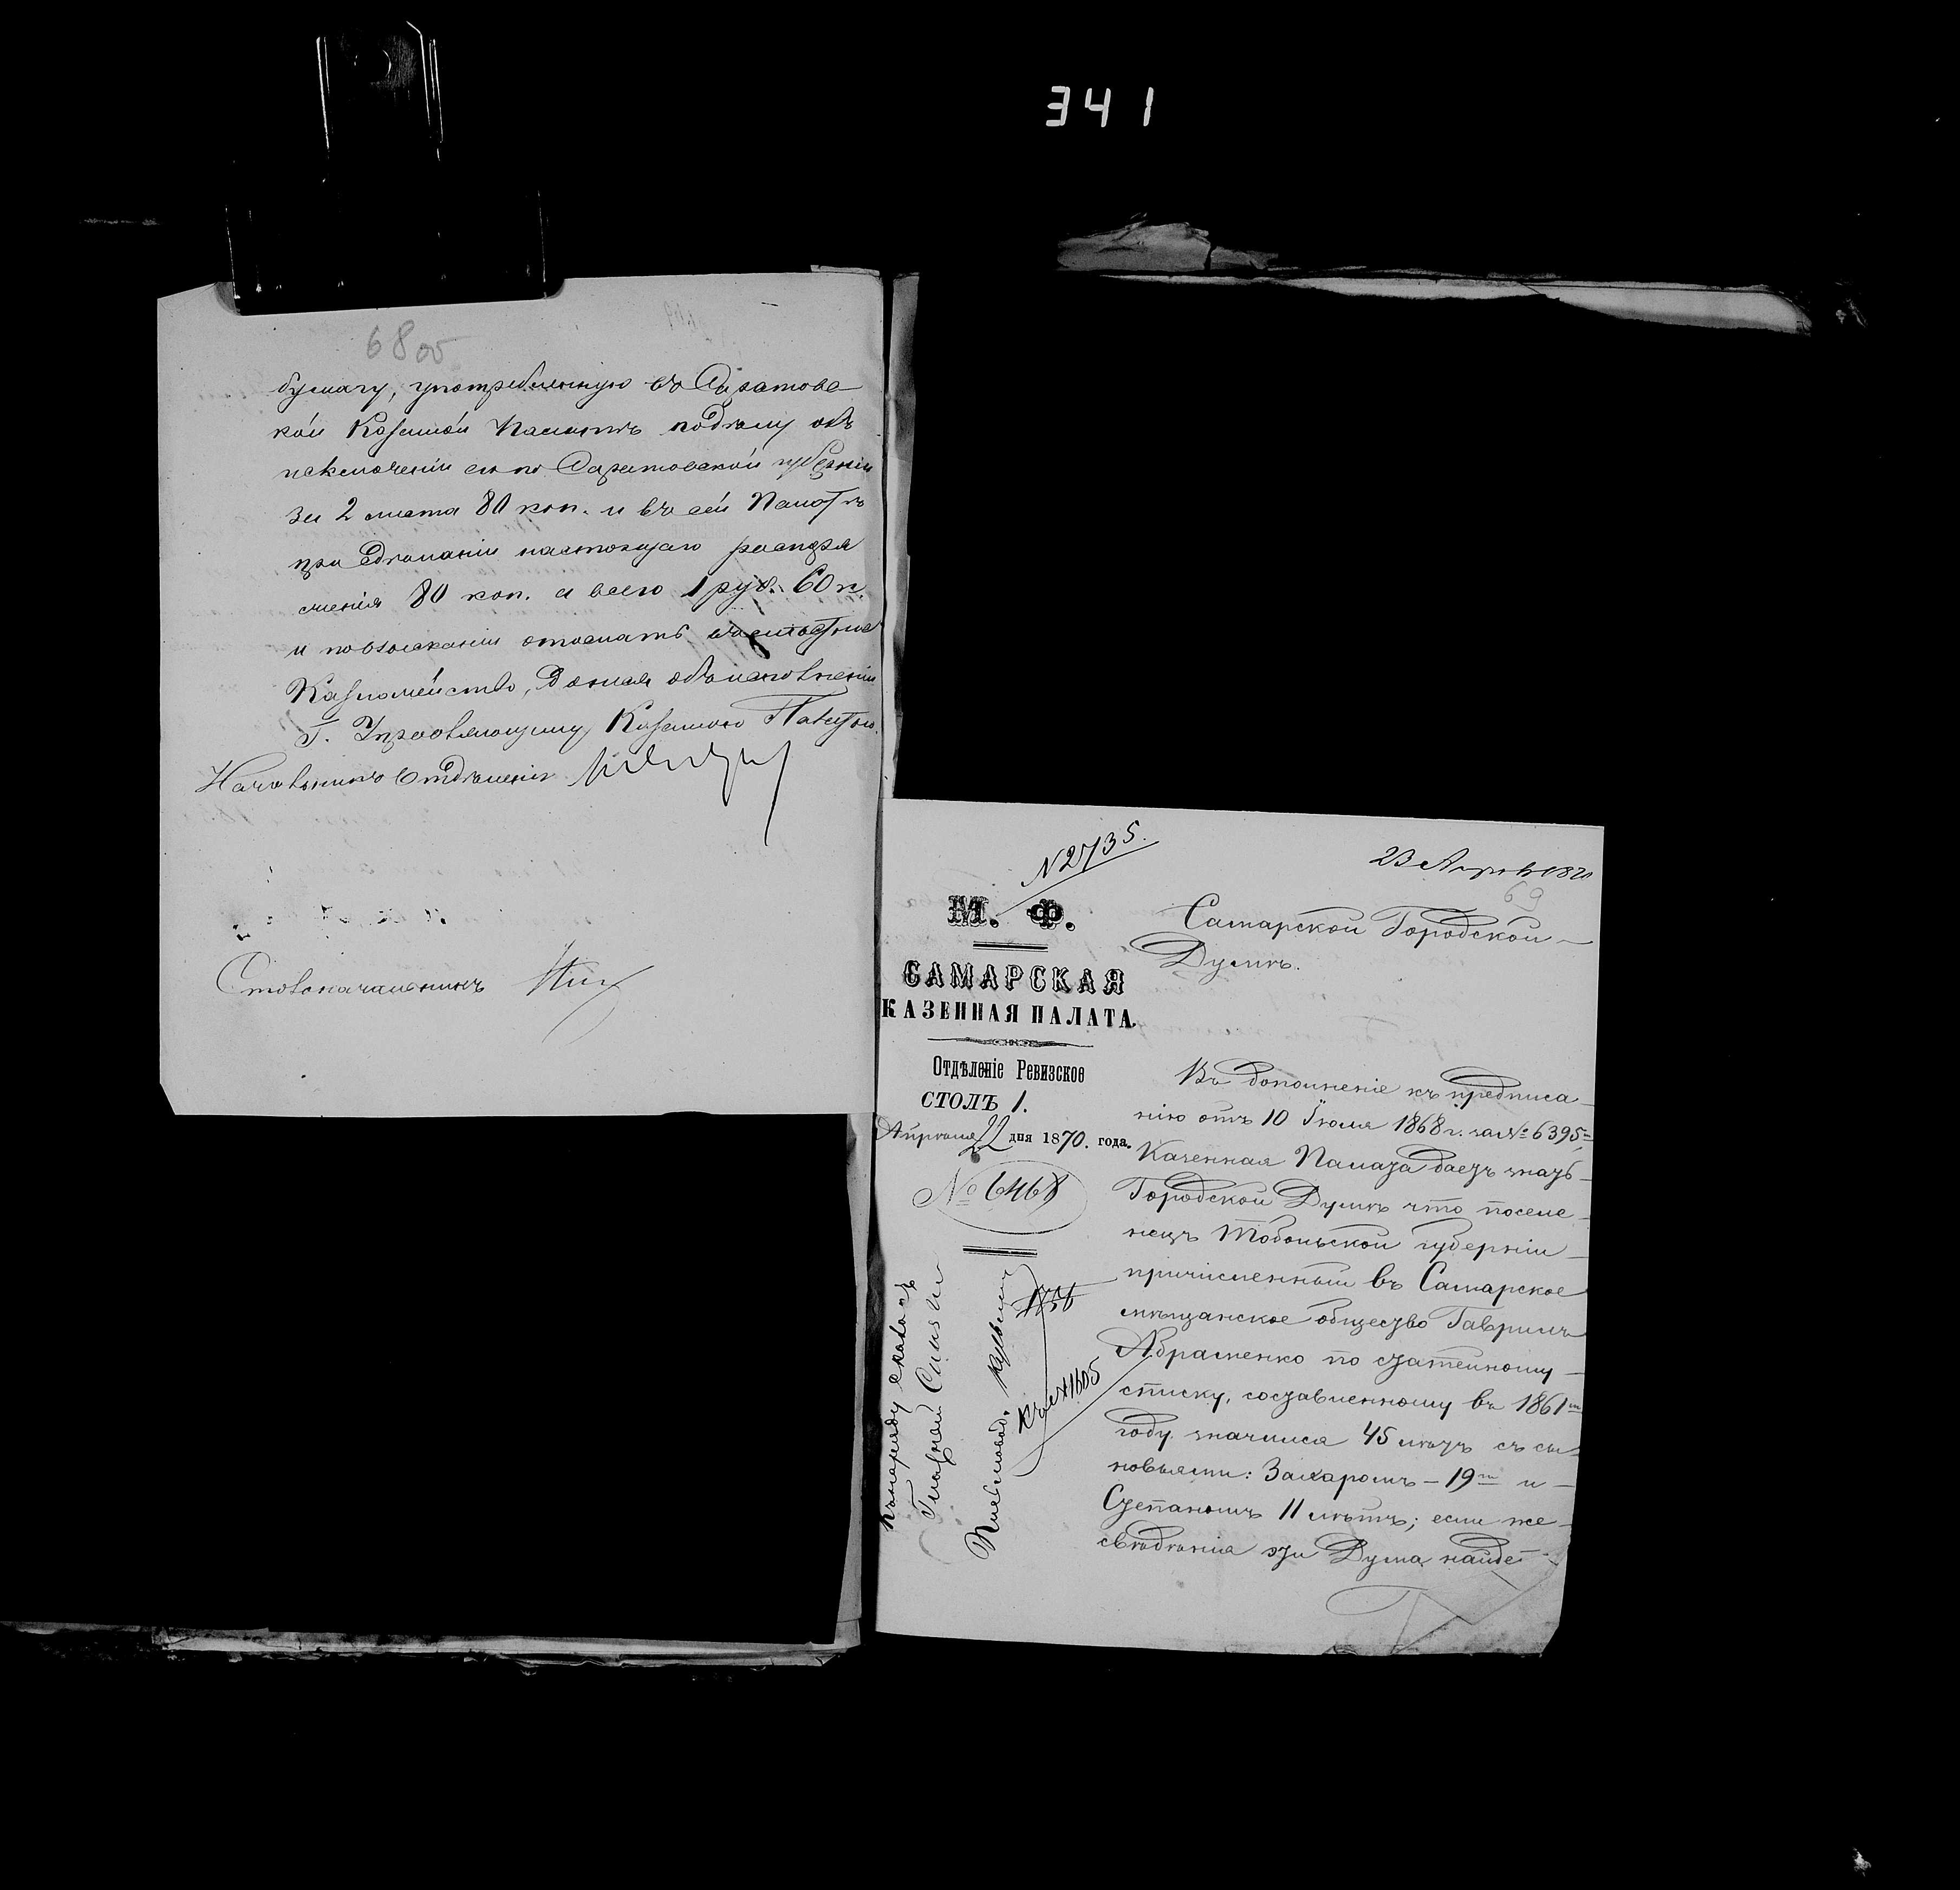 341
68 об
бумагу, употребленную въ Саратовс
кой Казенной Палатѣ по дѣлу объ
исключеніи его по Саратовской губерніи
за 2 листа 80 коп. и въ сей Палатѣ
при сдѣланіи настоящаго распоря
женія 80 коп. а всего 1 руб. 60 к.
и по взысканіи отослать въ мѣстное
Казначейство, донеся объ исполненіи
Г. Управляющему Казенною Палатою.
Начальникъ Отдѣленія
Столоначальникъ
N 2735.
23 Апрѣля 1870
69
М. Ф.
САМАРСКАЯ
КАЗЕННАЯ ПАЛАТА.
Отдѣленіе Ревизское
СТОЛЪ 1.
Апрѣля 22 дня 1870. года.
№ 6468
Самарской Городской
Думѣ.
Въ дополненіе къ предписа
нію отъ 10 Іюля 1868 г. за № 6395
Казенная Палата даетъ знать
Городской Думѣ что поселе
нецъ Тобольской губерніи
причисленный въ Самарское
мѣщанское общество Гаврилъ
Абраменко по статейному
списку, составленному въ 1861 м
году значился 45 лѣтъ съ сы
новьями: Захаромъ – 19 ти и
Степаномъ 11 лѣтъ; если же
свѣдѣнія эти Дума найде